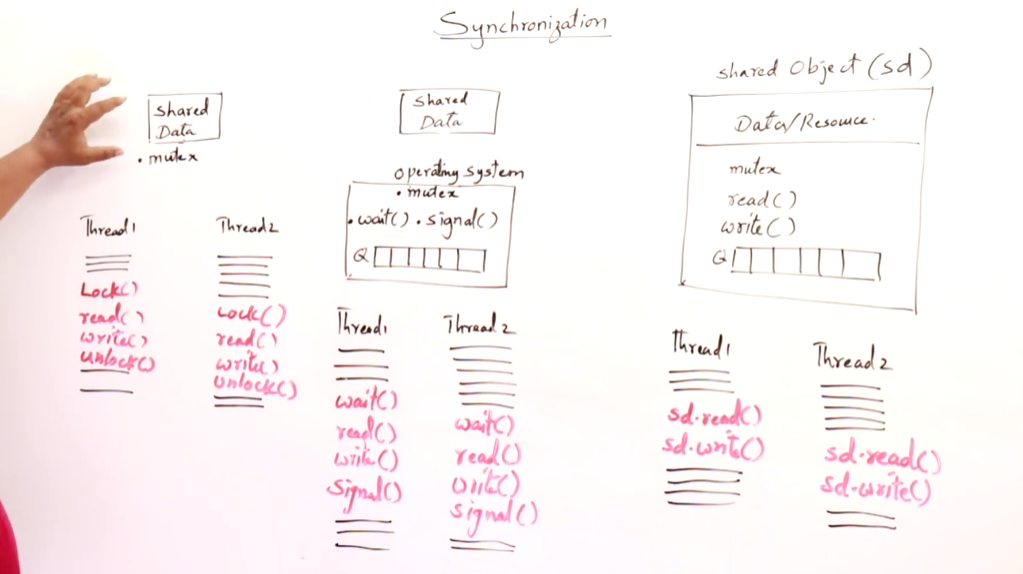 Synchronization
shared
Data
• mutex
Thread1
Lock()
read()
write()
unlock()
Thread2
Lock()
read()
write()
unlock()
shared
Data
operating system
• mutex
• wait() • signal()
Q
Thread1
wait()
read()
write()
signal()
Thread2
wait()
read()
write()
signal()
shared Object (sd)
Data/Resource.
mutex
read()
write()
Q
Thread1
sd.read()
sd.write()
Thread2
sd.read()
sd.write()